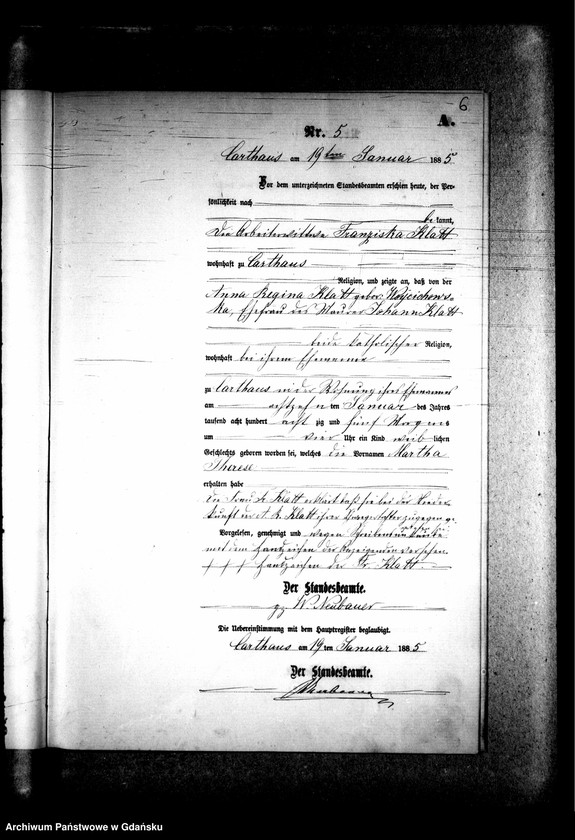 6
A.
Nr. 5
Carthaus am 19ten Januar 1885
Vor dem unterzeichneten Standesbeamten erschien heute, der Per-
sönlichkeit nach
be kannt,
Die Arbeiterwittwe Franziska Klatt
wohnhaft zu Carthaus
Religion, und zeigte an, daß von der
Anna Regina Klatt gebor. Wojcichows-
ka, Ehefrau des Maurer Johann Klatt
beide katholischer Religion,
wohnhaft bei ihrem Ehemanne
zu Carthaus in der Wohnung ihres Ehemannes
am achtzehn ten Januar des Jahres
tausend acht hundert acht zig und fünf Morgens
um vier Uhr ein Kind weib lichen
Geschlechts geboren worden sei, welches die Vornamen Martha
Therese
erhalten habe
Die Frau F. Klatt erklärt daß sie bei der Nieder-
kunft der A. R. Klatt ihrer zugegen ge-
Vorgelesen, genehmigt und wegen
mit dem Handzeichen der Anzeigenden versehen.
+ + + Handzeichen der Fr. Klatt.
Der Standesbeamte.
gz. W. Neubauer
Die Uebereinstimmung mit dem Hauptregister beglaubigt.
Carthaus am 19ten Januar 1885
Der Standesbeamte.
Neubauer
Archiwum Państwowe w Gdańsku